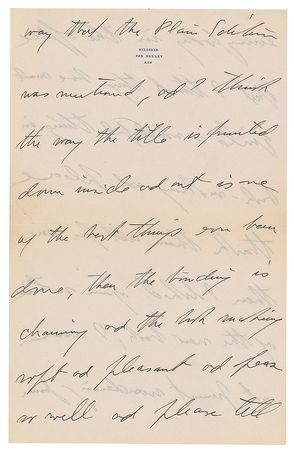 way that the Plain Edition
HILLSIDE
FAR HILLS
was mentioned, and I think
the way the title is printed
down inside and out is one
of the best things ever been
done, then the binding is
charming and the book making
soft and pleasant and
so well and please tell